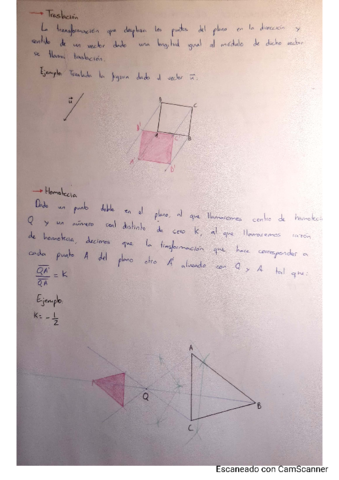 → Traslación
La transformación que desplaza los puntos del plano en la dirección y
sentido de un vector dado una longitud igual al módulo de dicho vector
se llama traslación.
Ejemplo: Traslada la figura dado el vector u:
u
B
C
A
→ Homotecia
Dado un punto doble en el plano, al que llamaremos centro de homotecia
Q y un número real distinto de cero K, al que llamaremos razón
de homotecia, decimos que la transformación que hace corresponder a
cada punto A del plano otro A' alineado con Q y A tal que:
QA'/QA = K
Ejemplo
K = -1/2
A
Q
B
C
Escaneado con CamScanner